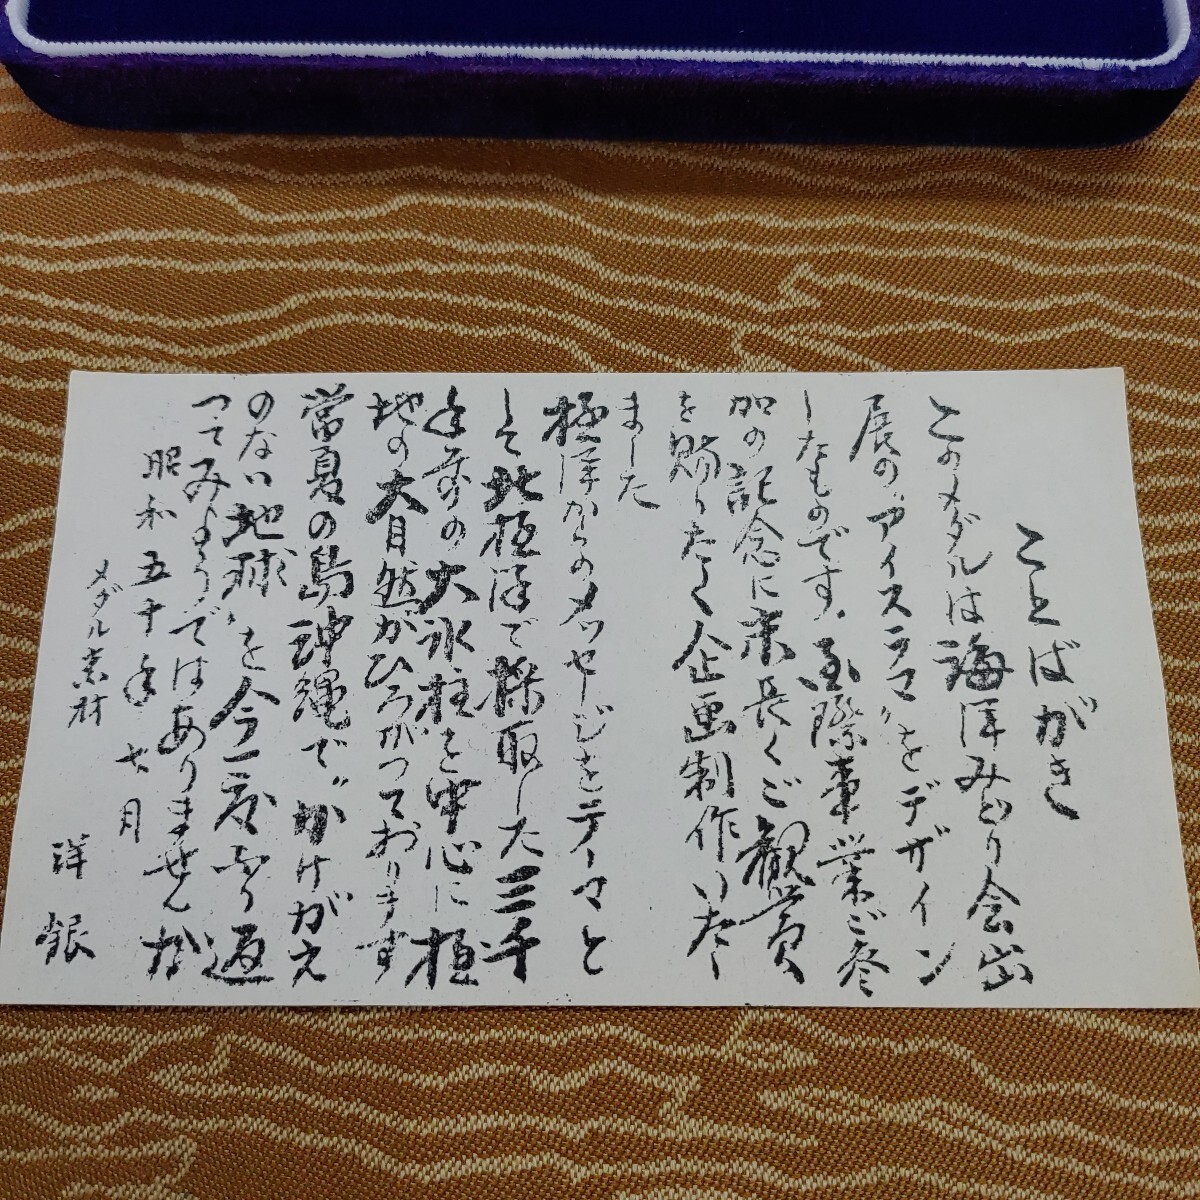 ことばがき
このメダルは海洋みどり会出
展の〝アイスラマ〟をデザイン
したものです。国際事業ご参
加の記念に末長くご観賞
を賜りたく企画制作いたし
ました
極洋からのメッセージをテーマと
して北極洋で採取した三千
年前の大氷柱を中心に極
地の大自然がひろがっております
常夏の島沖縄で〝かけがえ
のない地球〟を今一度ふり返
ってみようではありませんか
昭和五十年七月
メダル素材
洋銀